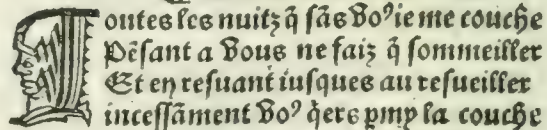 Toutes les nuitz q̃ ſãs voꝰ ie me couche
Pẽſant a vous ne faiz q̃ ſommeiller
Et en reſuant iuſques au reſueiller
inceſſãment voꝰ q̇ers ꝑmy la couche